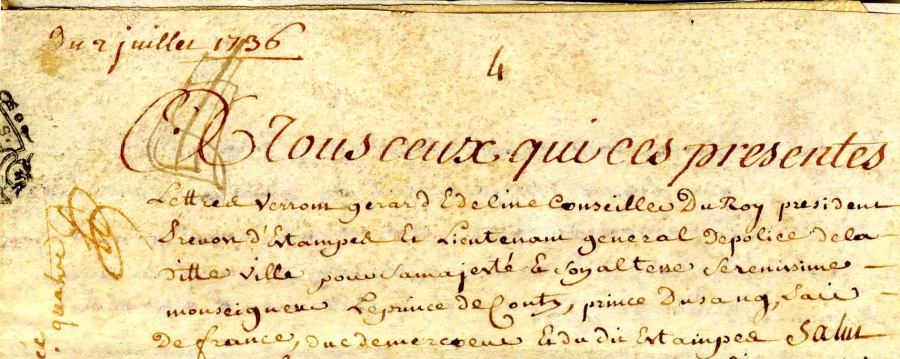 Du 2 juillet 1736
4
A Tous ceux qui ces presentes
Lettres verront gerard Edeline Conseiller Du Roy president
Prevost d'Estampes Et Lieutenant general de police de la
ditte ville pour sa majesté & Son altesse Serenissime
monseigneur Le prince de Conty, prince Du Sang, pair
De france, duc de mercoeur Et du dit Estampes Salut